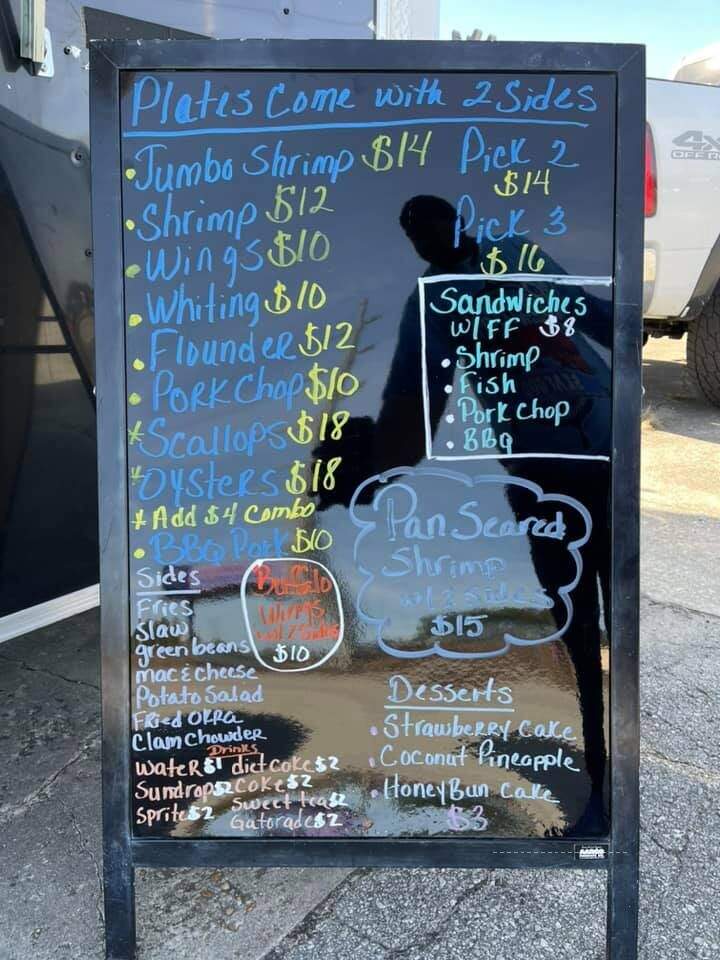 Plates Come with 2 Sides
• Jumbo Shrimp $14
• Shrimp $12
• Wings $10
• Whiting $10
• Flounder $12
• Pork Chop $10
* Scallops $18
* Oysters $18
* Add $4 Combo
• BBQ Pork $10
Pick 2
$14
Pick 3
$16
Sandwiches
W/ FF $8
• Shrimp
• Fish
• Pork Chop
• BBQ
Pan Seared
Shrimp
w/2 sides
$15
Sides
Fries
Slaw
green beans
mac & cheese
Potato Salad
Fried Okra
Clam Chowder
Buffalo
Wings
w/ 2 Sides
$10
Drinks
Water $1 diet Coke $2
Sundrop $2 Coke $2
Sprite $2 Sweet tea $2
Gatorade $2
Desserts
• Strawberry Cake
• Coconut Pineapple
• Honey Bun Cake
$3
4X
OFF R